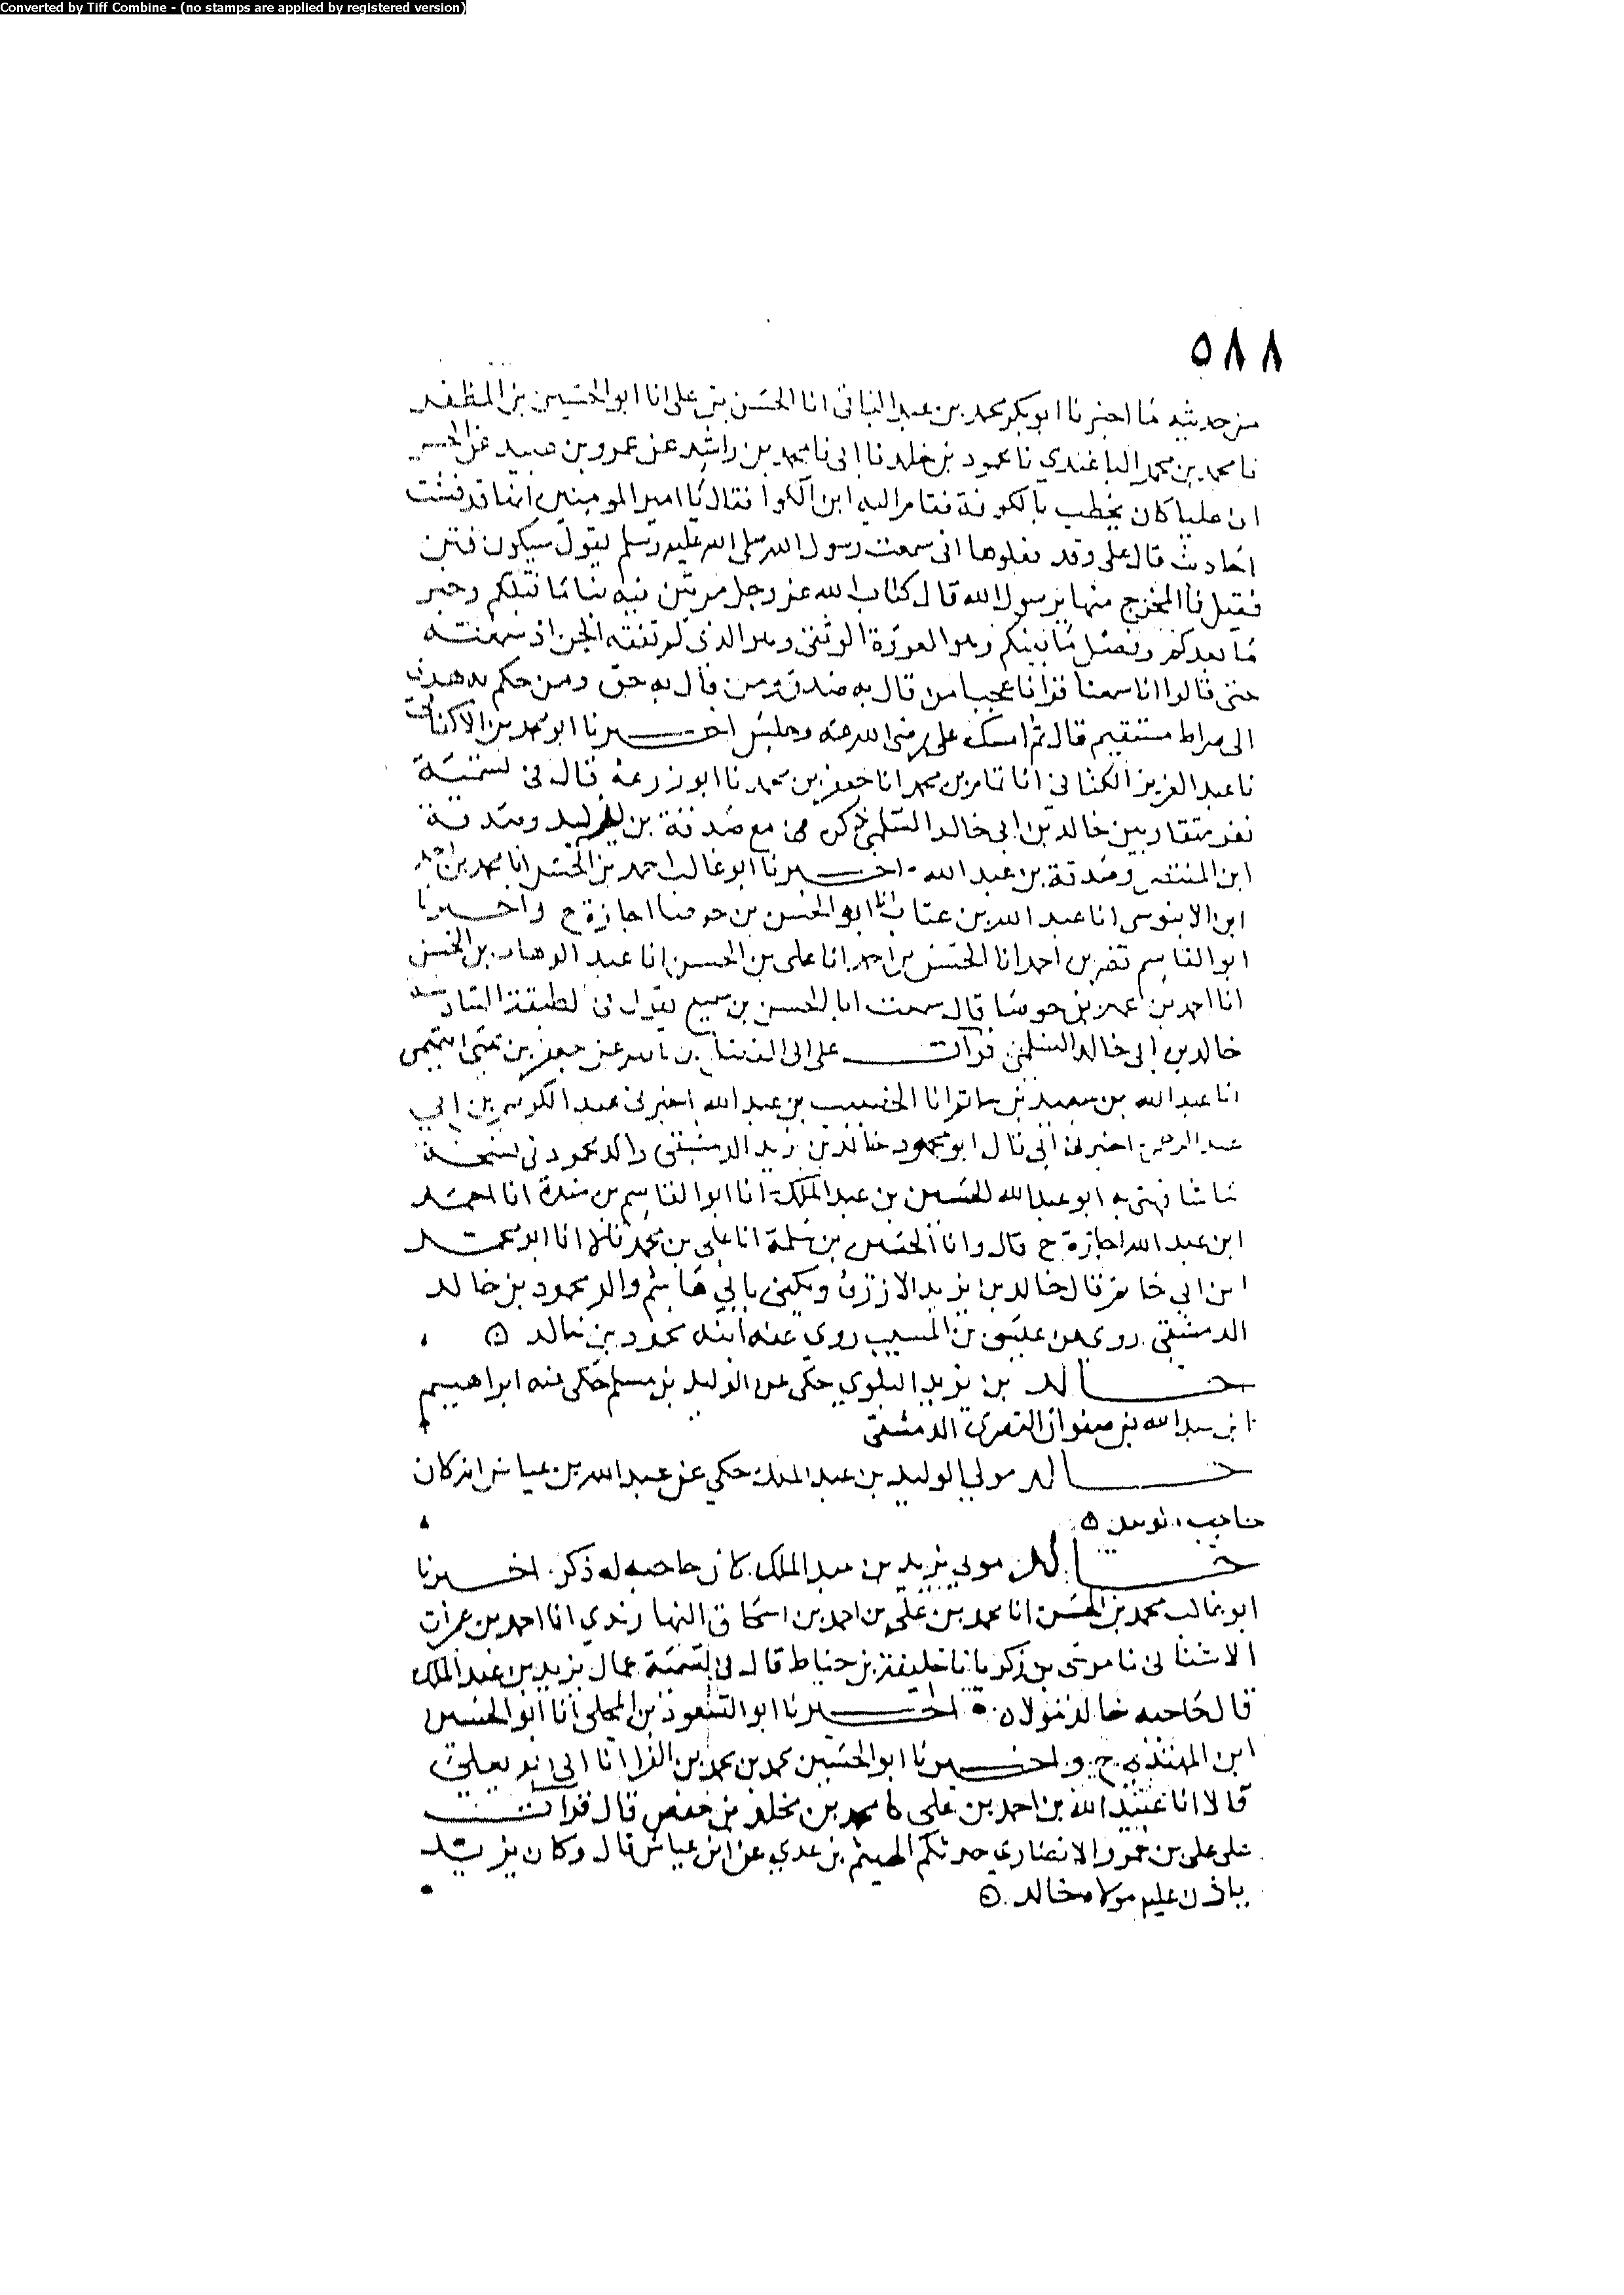 Converted by Tiff Combine - (no stamps are applied by registered version)
٥٨٨
من حديثه ما اخبرنا ابو بكر محمد بن عبد الباقي انا الحسن بن علي انا ابو الحسين بن المظفر
نا محمد بن محمد الباغندي نا محمود بن خلد نا ابي نا محمد بن راشد عن عمرو بن عبيد عن الحسن
ان عليا كان يخطب بالكوفة فقام اليه ابن الكوا فقال يا امير المومنين انها قد فشت
احاديث قال علي وقد فعلوها اني سمعت رسول الله صلى الله عليه وسلم يقول سيكون فتن
فقيل فما المخرج منها يرسول الله قال كتاب الله عز وجل مرتين فيه نبا ما قبلكم وخبر
ما بعدكم وفصل ما بينكم وهو العروة الوثقى وهو الذي لم تفته الجن اذ سمعته
حتى قالوا انا سمعنا قرانا عجبا من قال به صدق ومن قال به حق ومن حكم به هدي
الى صراط مستقيم قال ثم امسك علي رضي الله عنه وجلس اخبرنا ابو محمد بن الاكفاني
نا عبد العزيز الكتاني انا تمام بن محمد انا جعفر بن محمد نا ابو زرعة قال في تسمية
نفر متقاربين خالد بن ابي خالد السلمي ذكره مع صدقة بن الوليد وصدقة
ابن المنتصر وصدقة بن عبد الله اخبرنا ابو غالب احمد بن الحسن انا محمد بن احمد
ابن الابنوسي انا عبد الله بن عتاب انا ابو الحسن بن جوصا اجازة ح واخبرنا
ابو القاسم نصر بن احمد انا الحسن بن احمد انا علي بن الحسن انا عبد الوهاب بن الحسن
انا احمد بن عمير بن جوصا قال سمعت ابا الحسن بن سميع يقول في الطبقة السادسة
خالد بن ابي خالد السلمي قرات على ابي الفضل بن ناصر عن جعفر بن يحيى التميمي
انا عبد الله بن سعيد بن حاتم انا الخصيب بن عبد الله اخبرني عبد الكريم بن ابي
عبد الرحمن اخبرني ابي قال ابو محمود خالد بن يزيد الدمشقي والد محمود في نسخة
ما شافهني به ابو عبد الله الحسين بن عبد الملك انا ابو القاسم بن مندة انا احمد
ابن عبد الله اجازة ح قال وانا الحسين بن سلمة انا علي بن محمد قالا انا ابو محمد
ابن ابي حاتم قال خالد بن يزيد الازرق ويكنى بابي هاشم والد محمود بن خالد
الدمشقي روى عن عيسى بن المسيب روى عنه ابنه محمود بن خالد
خالد بن يزيد البلوي حكى عن الوليد بن مسلم حكى عنه ابراهيم
ابن عبد الله بن صفوان النصري الدمشقي
خالد مولى الوليد بن عبد الملك حكي عن عبد الله بن عياش انه كان
حاجب الوليد
خالد مولى يزيد بن عبد الملك كان حاجبه له ذكر اخبرنا
ابو غالب محمد بن الحسن انا محمد بن علي بن احمد بن اسحاق النهاوندي انا احمد بن عمران
الاشناني نا موسى بن زكريا نا خليفة بن خياط قال في تسمية عمال يزيد بن عبد الملك
قال حاجبه خالد مولاه اخبرنا ابو السعود بن المجلي انا ابو الحسين
ابن المهتدي ح واخبرنا ابو الحسين محمد بن محمد بن الفرا انا ابي ابو يعلى
قالا انا عبيد الله بن احمد بن علي نا محمد بن مخلد بن حفص قال قرات
على علي بن عمرو الانصاري حدثكم الهيثم بن عدي عن ابن عياش قال وكان يزيد
ياذن عليه مولاه خالد